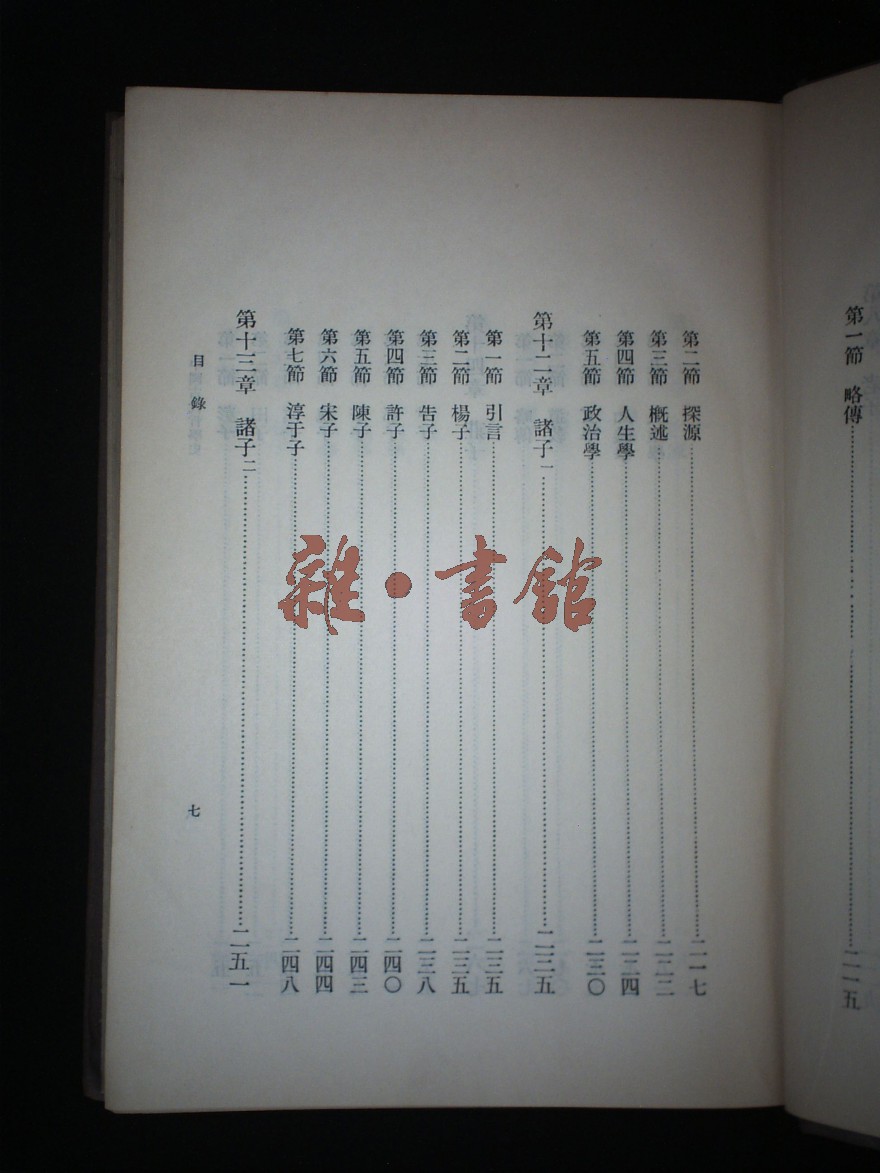 第一節 略傳……二一五
第二節 探源……二一七
第三節 概述……二二二
第四節 人生學……二二四
第五節 政治學……二三〇
第十二章 諸子一……二三五
第一節 引言……二三五
第二節 楊子……二三五
第三節 告子……二三八
第四節 許子……二四〇
第五節 陳子……二四三
第六節 宋子……二四四
第七節 淳于子……二四八
第十三章 諸子二……二五一
目錄
七
雜·書館